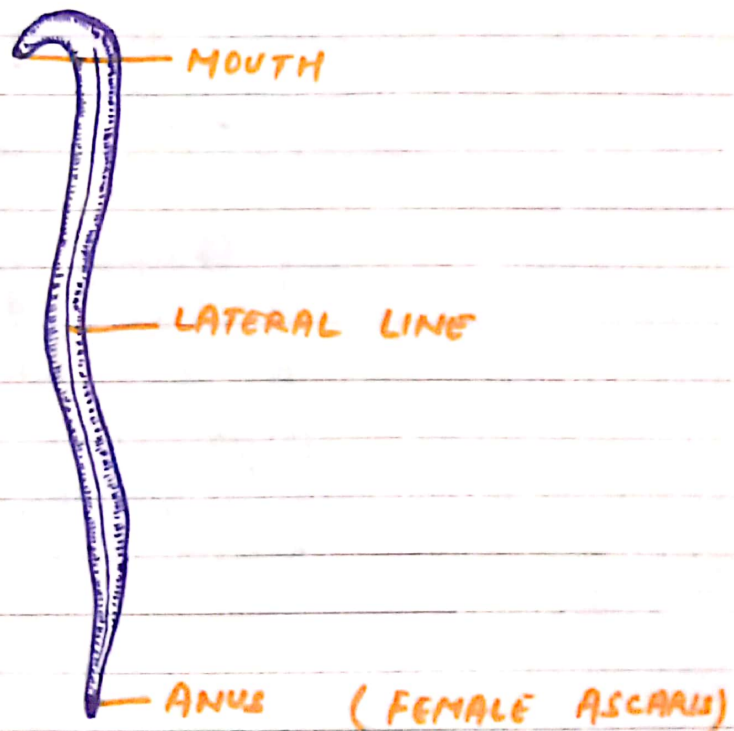 MOUTH
LATERAL LINE
ANUS (FEMALE ASCARIS)